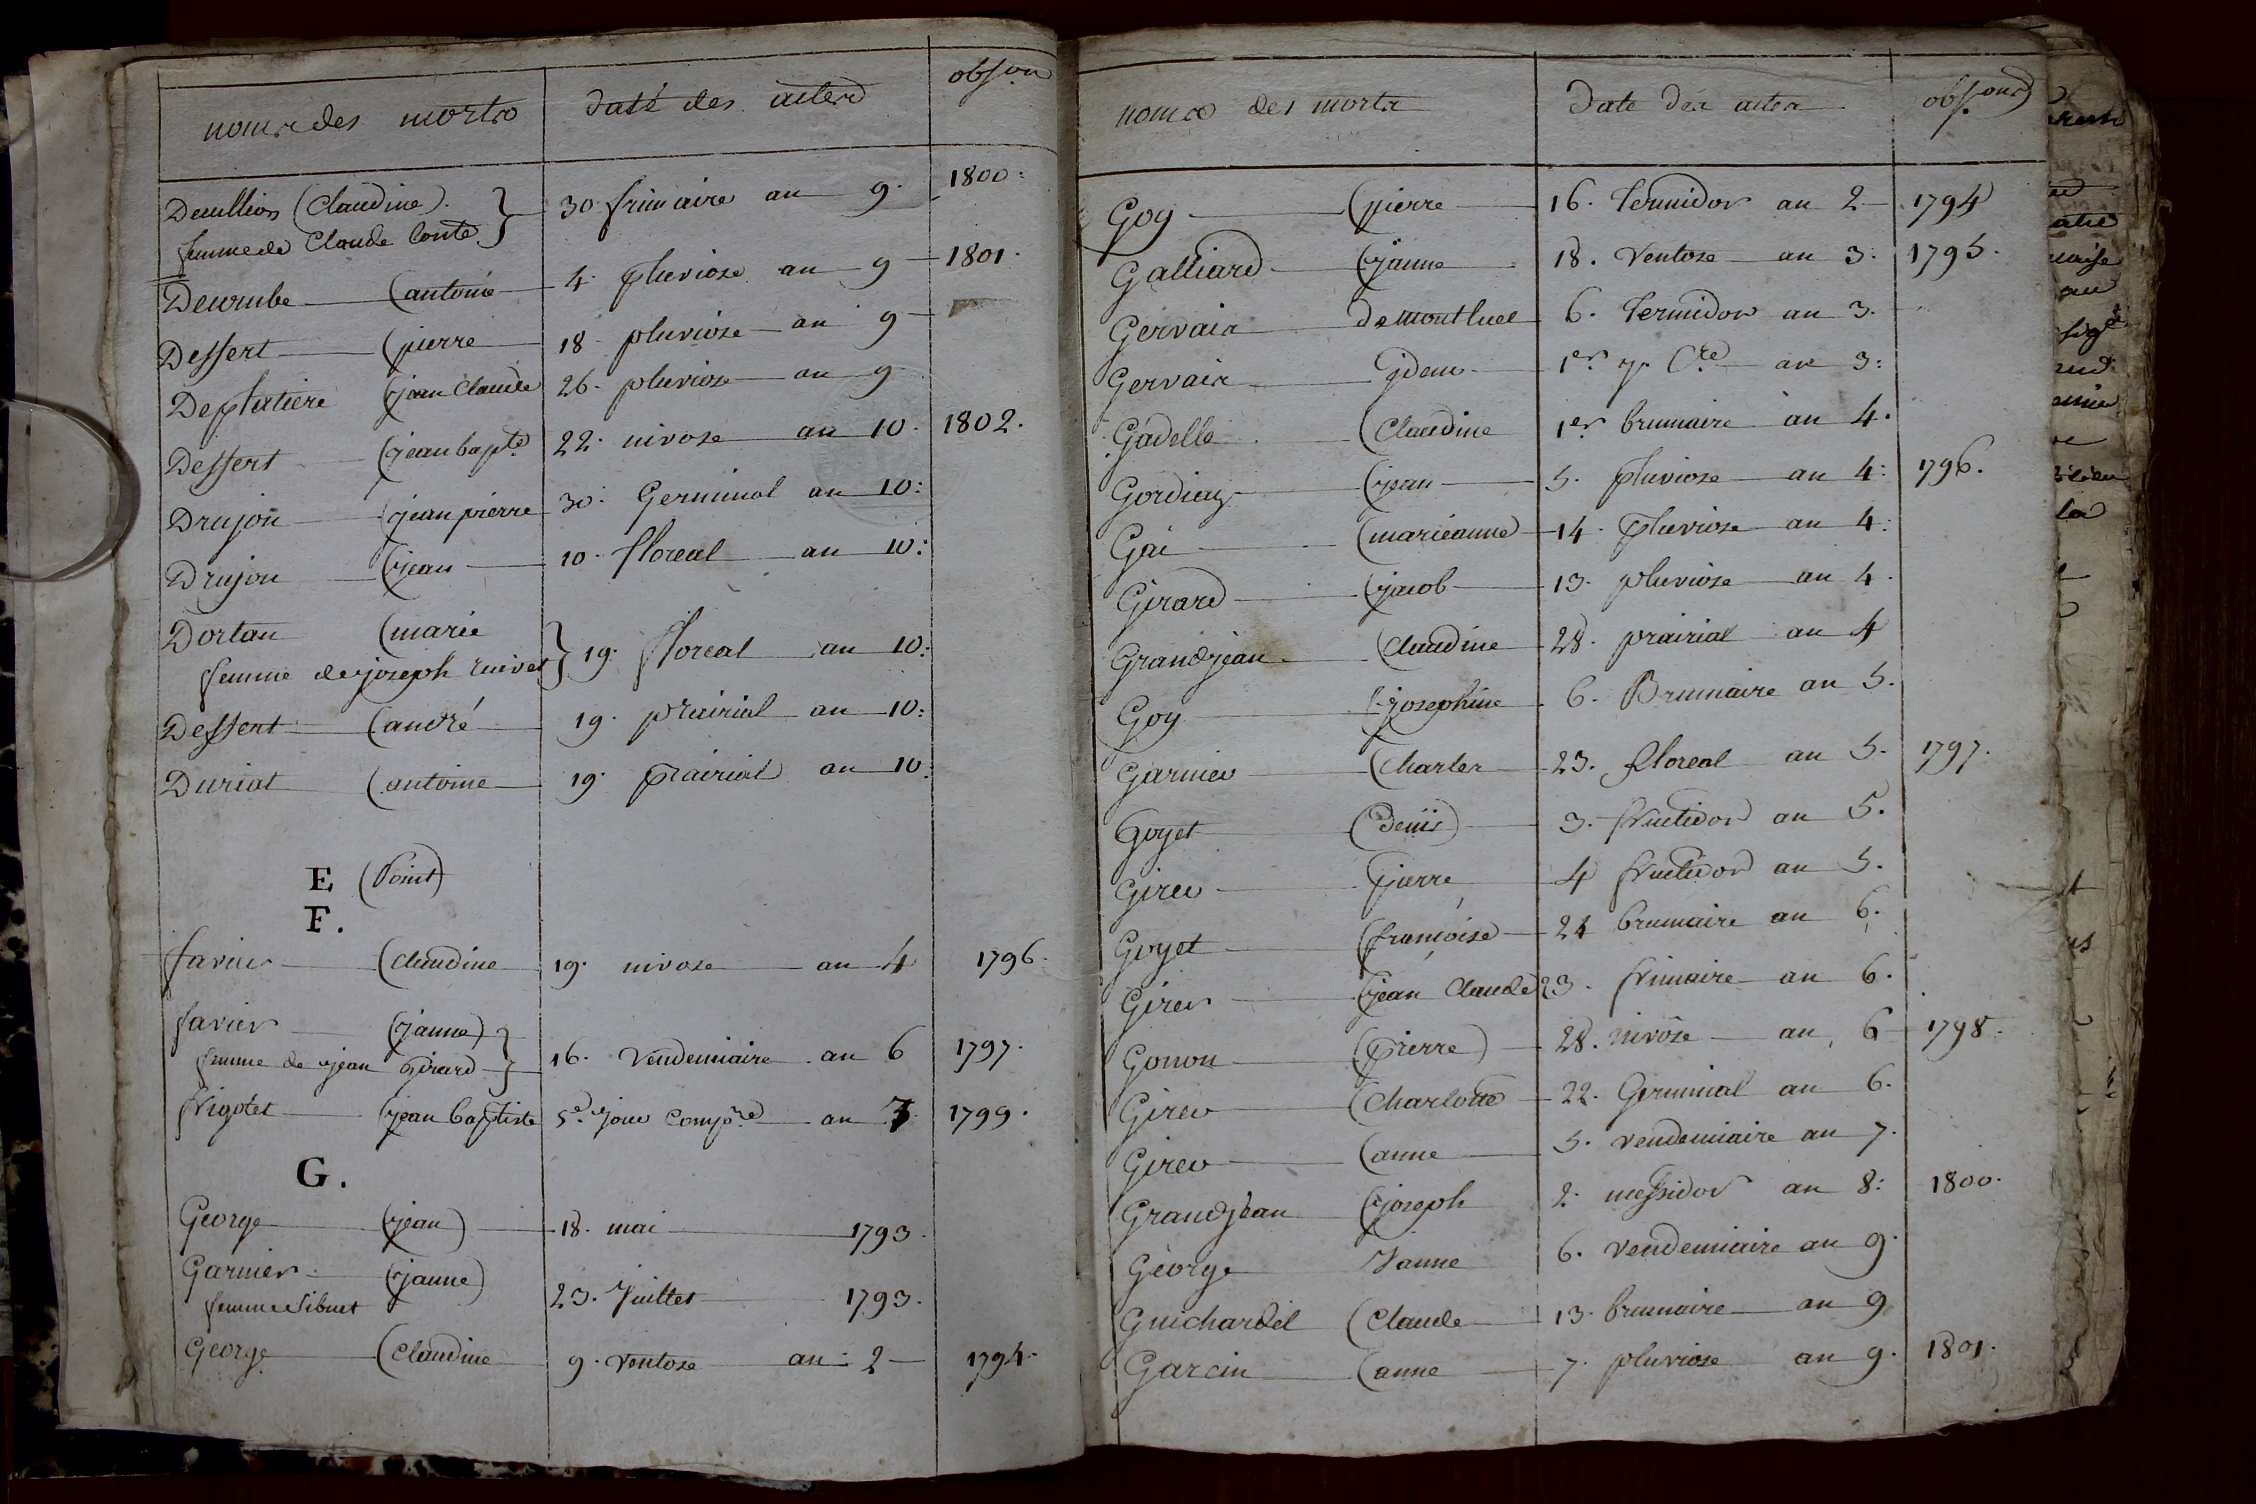 noms des morts daté des actes obson
Deuillion (Claudine).
femme de Claude Conte } 30 frimaire an 9. 1800.
Decombe (antoine 4. pluviose an 9 1801.
Dessert (pierre 18. pluviose an 9
Deplatiere (jean Claude 26. pluviose an 9
Dessert (jean bapte 22. nivose an 10. 1802.
Drujon (jean pierre 30. Germinal an 10.
Drujon (jean 10. floreal an 10.
Dortan (marie
femme de joseph ruivet } 19. floreal an 10.
Dessert (andré 19. prairial an 10.
Duriat (antoine 19. prairial an 10.
E (Point)
F.
favier (Claudine 19. nivose an 4 1796.
favier (janne)
femme de jean Girard } 16. Vendemiaire an 6 1797.
frigotet (jean baptiste 5e jour compre an 7. 1799.
G.
George (jean) 18. mai 1793.
Garnier (janne)
femme Sibuet 23. Juillet 1793.
George (Claudine 9. Ventose an 2 1794.
noms des morts Date des actes obsons
Goy (pierre 16. termidor an 2 1794
Galliard (janne 18. Ventose an 3. 1795.
Gervais De montluel 6. termidor an 3.
Gervais jdem 1er j. Cre an 3.
Gadelle (Claudine 1er brumaire an 4.
Gordiay (jean 5. pluviose an 4. 1796.
Gai (marieanne 14. pluviose an 4.
Girard (jacob 13. pluviose an 4.
Grandjean (Claudine 28. prairial an 4
Goy (josephine 6. Brumaire an 5.
Garnier (Charles 23. floreal an 5. 1797.
Goyet (Denis) 3. fructidor an 5.
Girer (pierre 4 fructidor an 5.
Goyet (françoise 24 brumaire an 6.
Girer (jean Claude 23. frimaire an 6.
Gonon (pierre) 28. nivose an 6 1798.
Girer (Charlotte 22. Germinal an 6.
Girer (anne 5. vendemiaire an 7.
Grandjean (joseph 2. messidor an 8. 1800.
George Janne 6. vendemiaire an 9.
Guichardel (Claude 13. brumaire an 9
Garcin (anne 7. pluviose an 9. 1801.